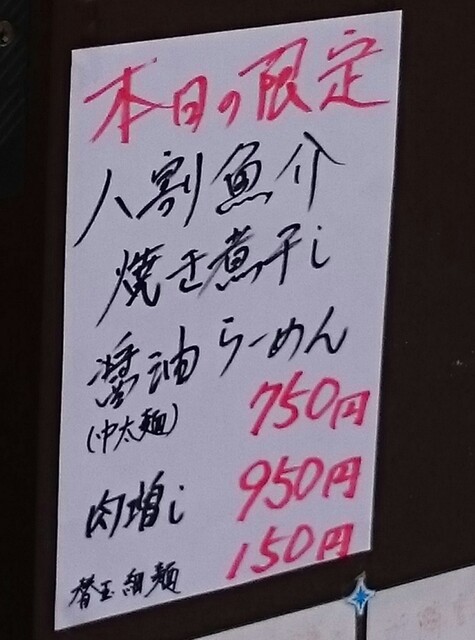 本日の限定
八割魚介
焼き煮干し
醤油らーめん
(中太麺) 750円
肉増し 950円
替玉細麺 150円